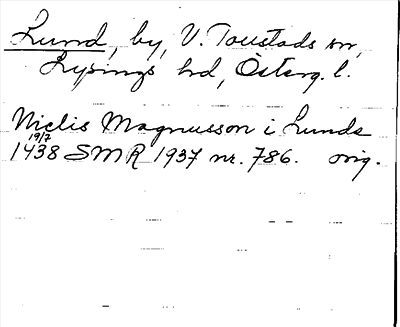 Lund, by, V. Toustads sn,
Lysings hd, Österg. l.
Niclis Magnusson i Lunda
19/7
1438 SMR 1937 nr. 786. orig.